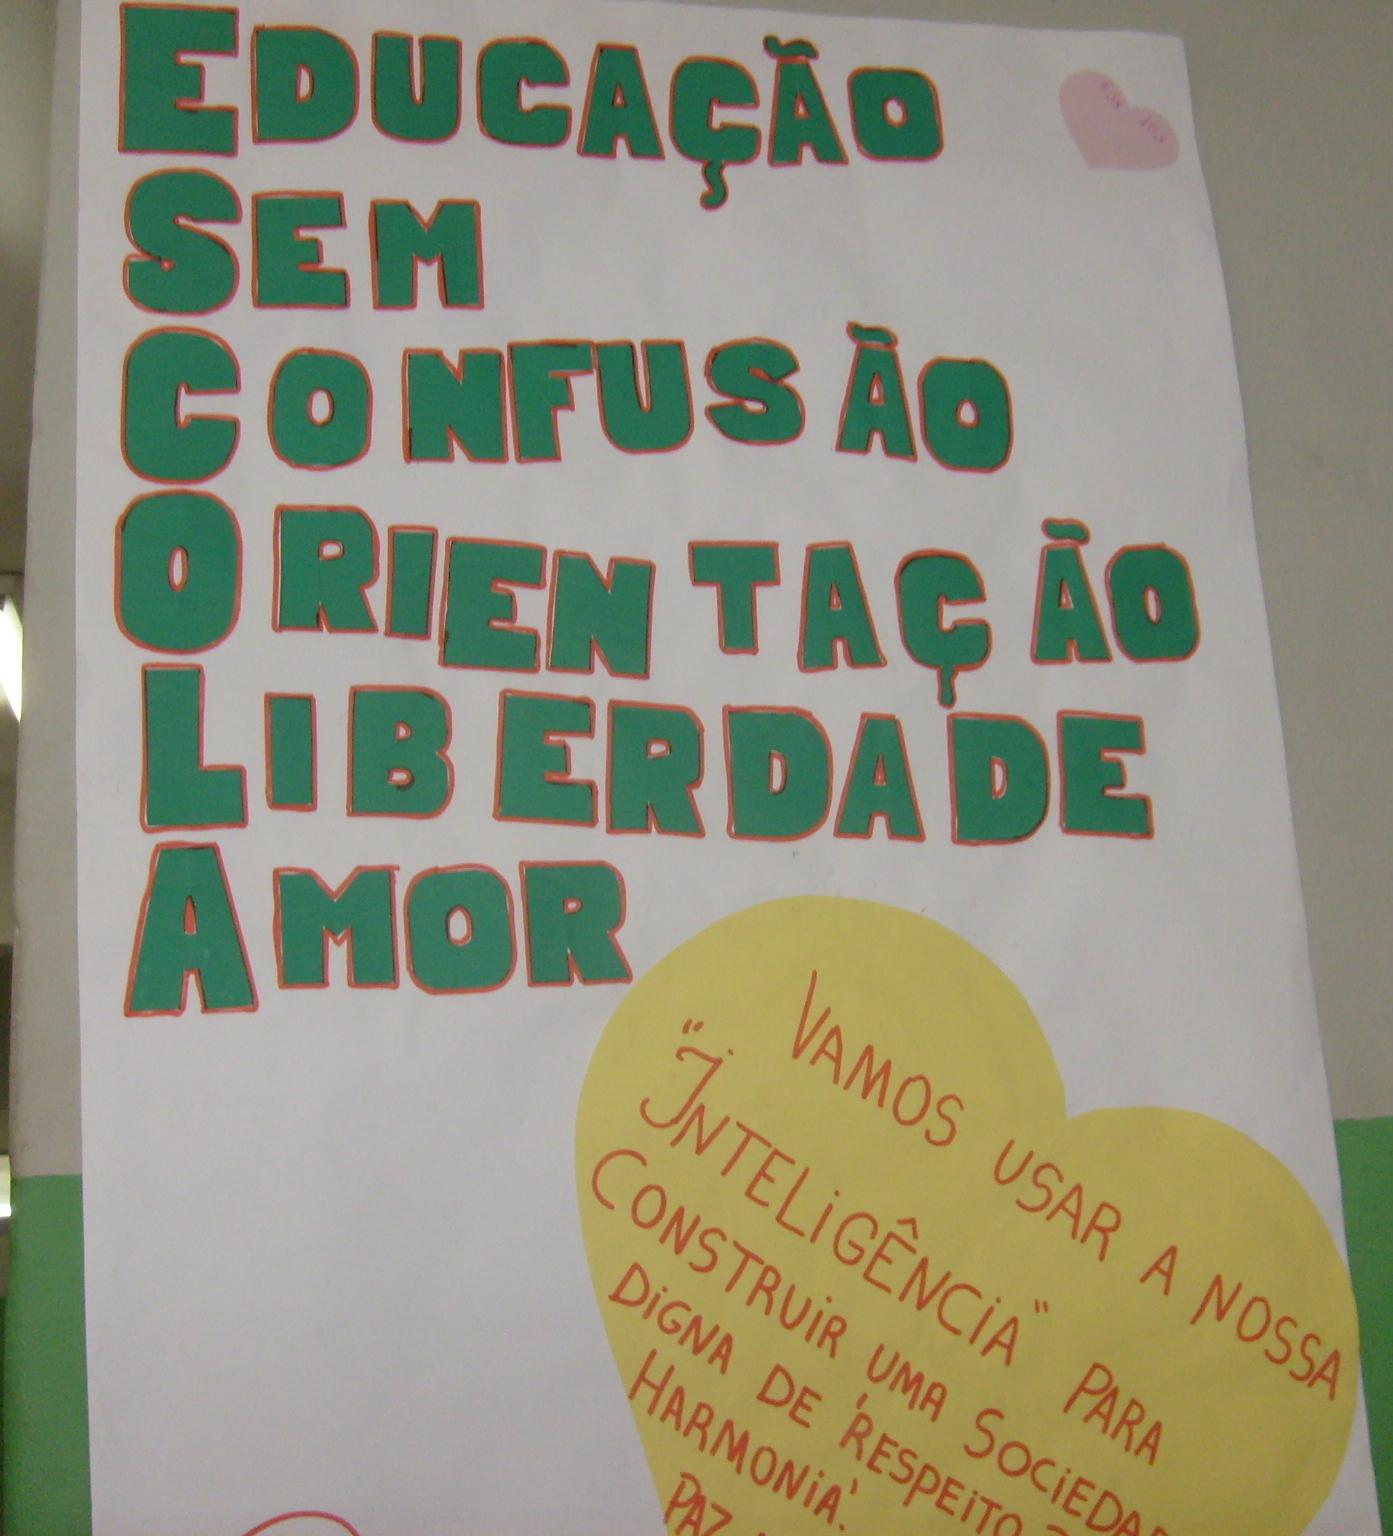 EDUCAÇÃO
SEM
CONFUSÃO
ORIENTAÇÃO
LIBERDADE
AMOR
VAMOS USAR A NOSSA
"INTELIGÊNCIA" PARA
CONSTRUIR UMA
DIGNA DE RESPEITO
HARMONIA.
PAZ